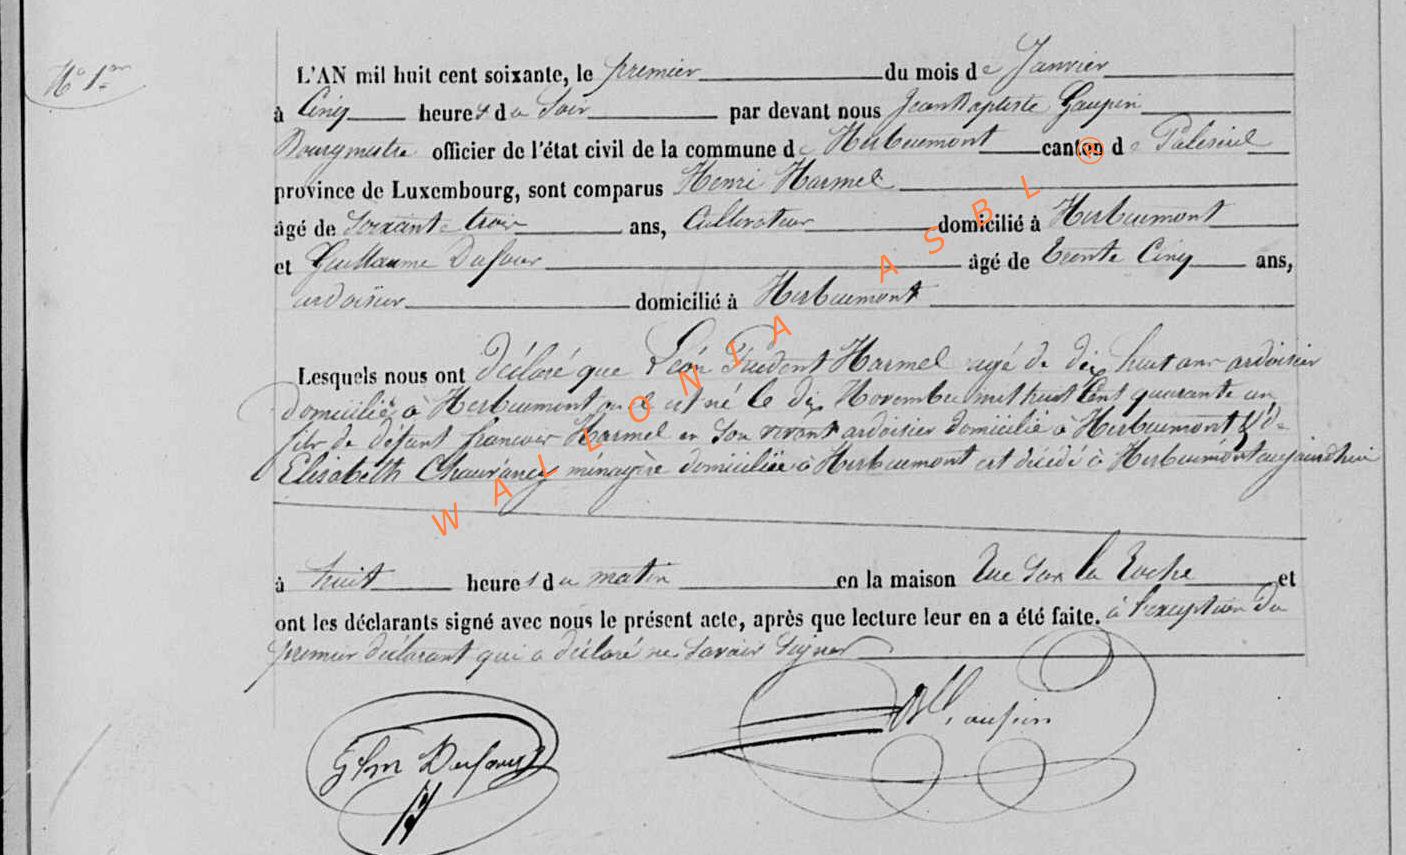 N° 1er
L'AN mil huit cent soixante, le premier du mois de Janvier
à Cinq heures du Soir par devant nous Jean Baptiste Gaupin
Bourgmestre officier de l'état civil de la commune de Herbeumont canton de Paliseul
province de Luxembourg, sont comparus Henri Harmel
âgé de Soixante trois ans, Cultivateur domicilié à Herbeumont
et Guillaume Dufour âgé de trente Cinq ans,
ardoisier domicilié à Herbeumont
Lesquels nous ont déclaré que Léon Prudent Harmel agé de dix huit ans ardoisier
domicilié à Herbeumont où il est né le dix Novembre mil huit Cent quarante un
fils de défunt françois Harmel en son vivant ardoisier domicilié à Herbeumont & de
Elisabeth ménagère domiciliée à Herbeumont est décédé à Herbeumont aujourd'hui
à huit heures du matin en la maison Rue Sur la Roche et
ont les déclarants signé avec nous le présent acte, après que lecture leur en a été faite. à l'exception du
premier déclarant qui a déclaré ne Savoir Signer
Glm Dufour
JB Gaupin
WALLONIA ASBL ®